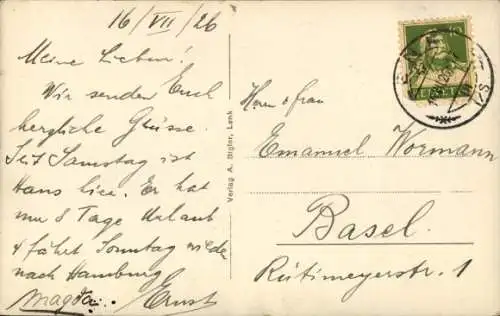 16/VII/26
Meine Lieben!
Wir senden Euch
herzliche Grüsse.
Seit Samstag ist
Hans hier. Er hat
nur 8 Tage Urlaub
& fährt Sonntag wieder
nach Hamburg
Magda. Ernst
Verlag A. Bigler, Lenk
Herrn & Frau
Emanuel Wormann
Basel.
Rütimeyerstr. 1
10
HELVETIA